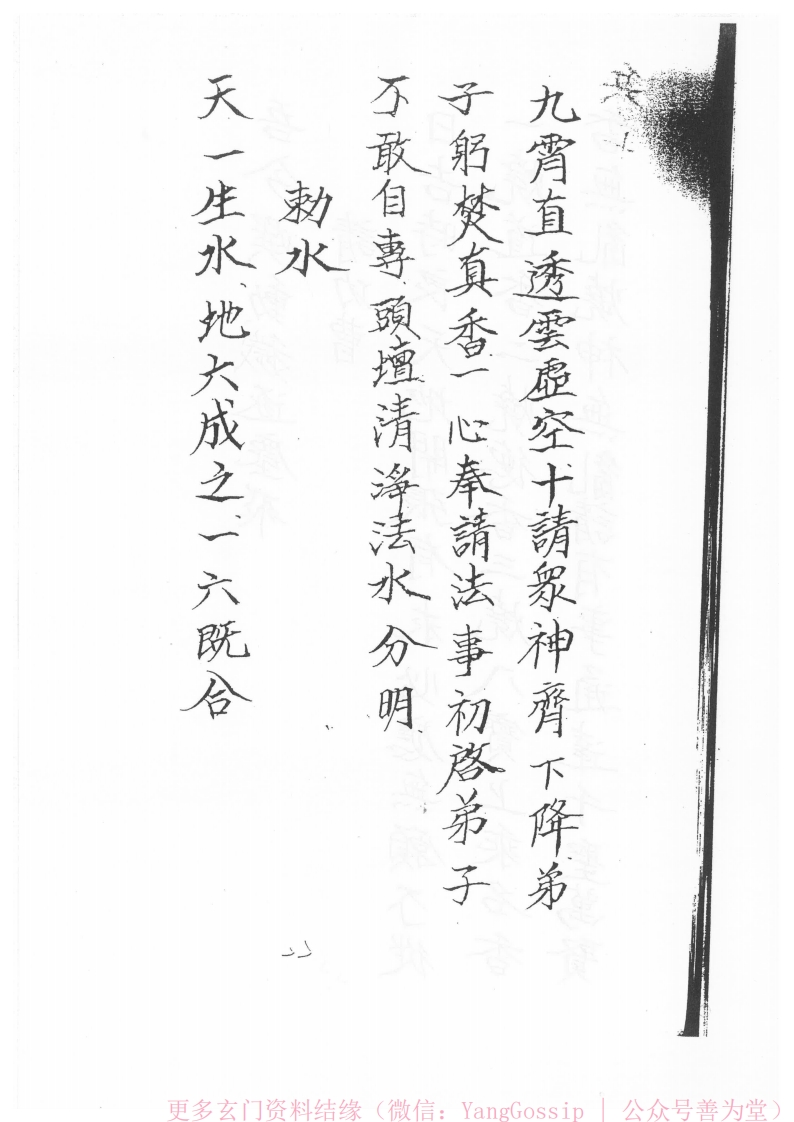 九霄直透雲虛空十請眾神齊下降弟
子躬焚真香一心奉請法事初啓弟子
不敢自專頭壇清淨法水分明
勅水
天一生水、地六成之、一六既合
更多玄门资料结缘（微信：YangGossip | 公众号善为堂）